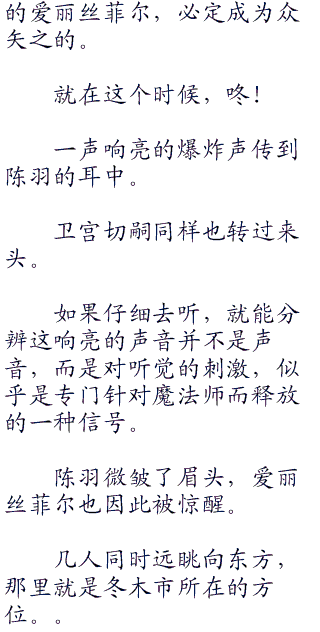 的爱丽丝菲尔，必定成为众
矢之的。
就在这个时候，咚！
一声响亮的爆炸声传到
陈羽的耳中。
卫宫切嗣同样也转过来
头。
如果仔细去听，就能分
辨这响亮的声音并不是声
音，而是对听觉的刺激，似
乎是专门针对魔法师而释放
的一种信号。
陈羽微皱了眉头，爱丽
丝菲尔也因此被惊醒。
几人同时远眺向东方，
那里就是冬木市所在的方
位。。